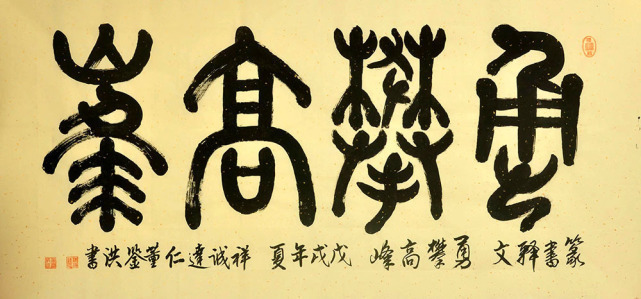 勇攀高峰
篆書釋文 勇攀高峰 戊戌年夏 祥诚達仁董鉴洪書